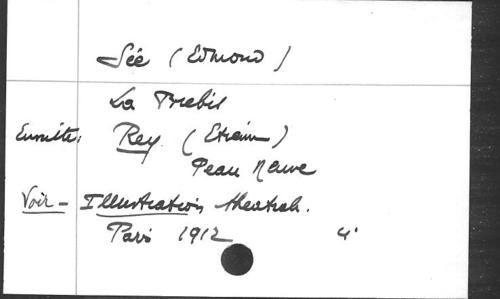 Sée (Edmond)
La Brebis
Ensuite: Rey. (Etienne)
Peau Neuve
Voir - Illustration théatrale.
Paris 1912 4°